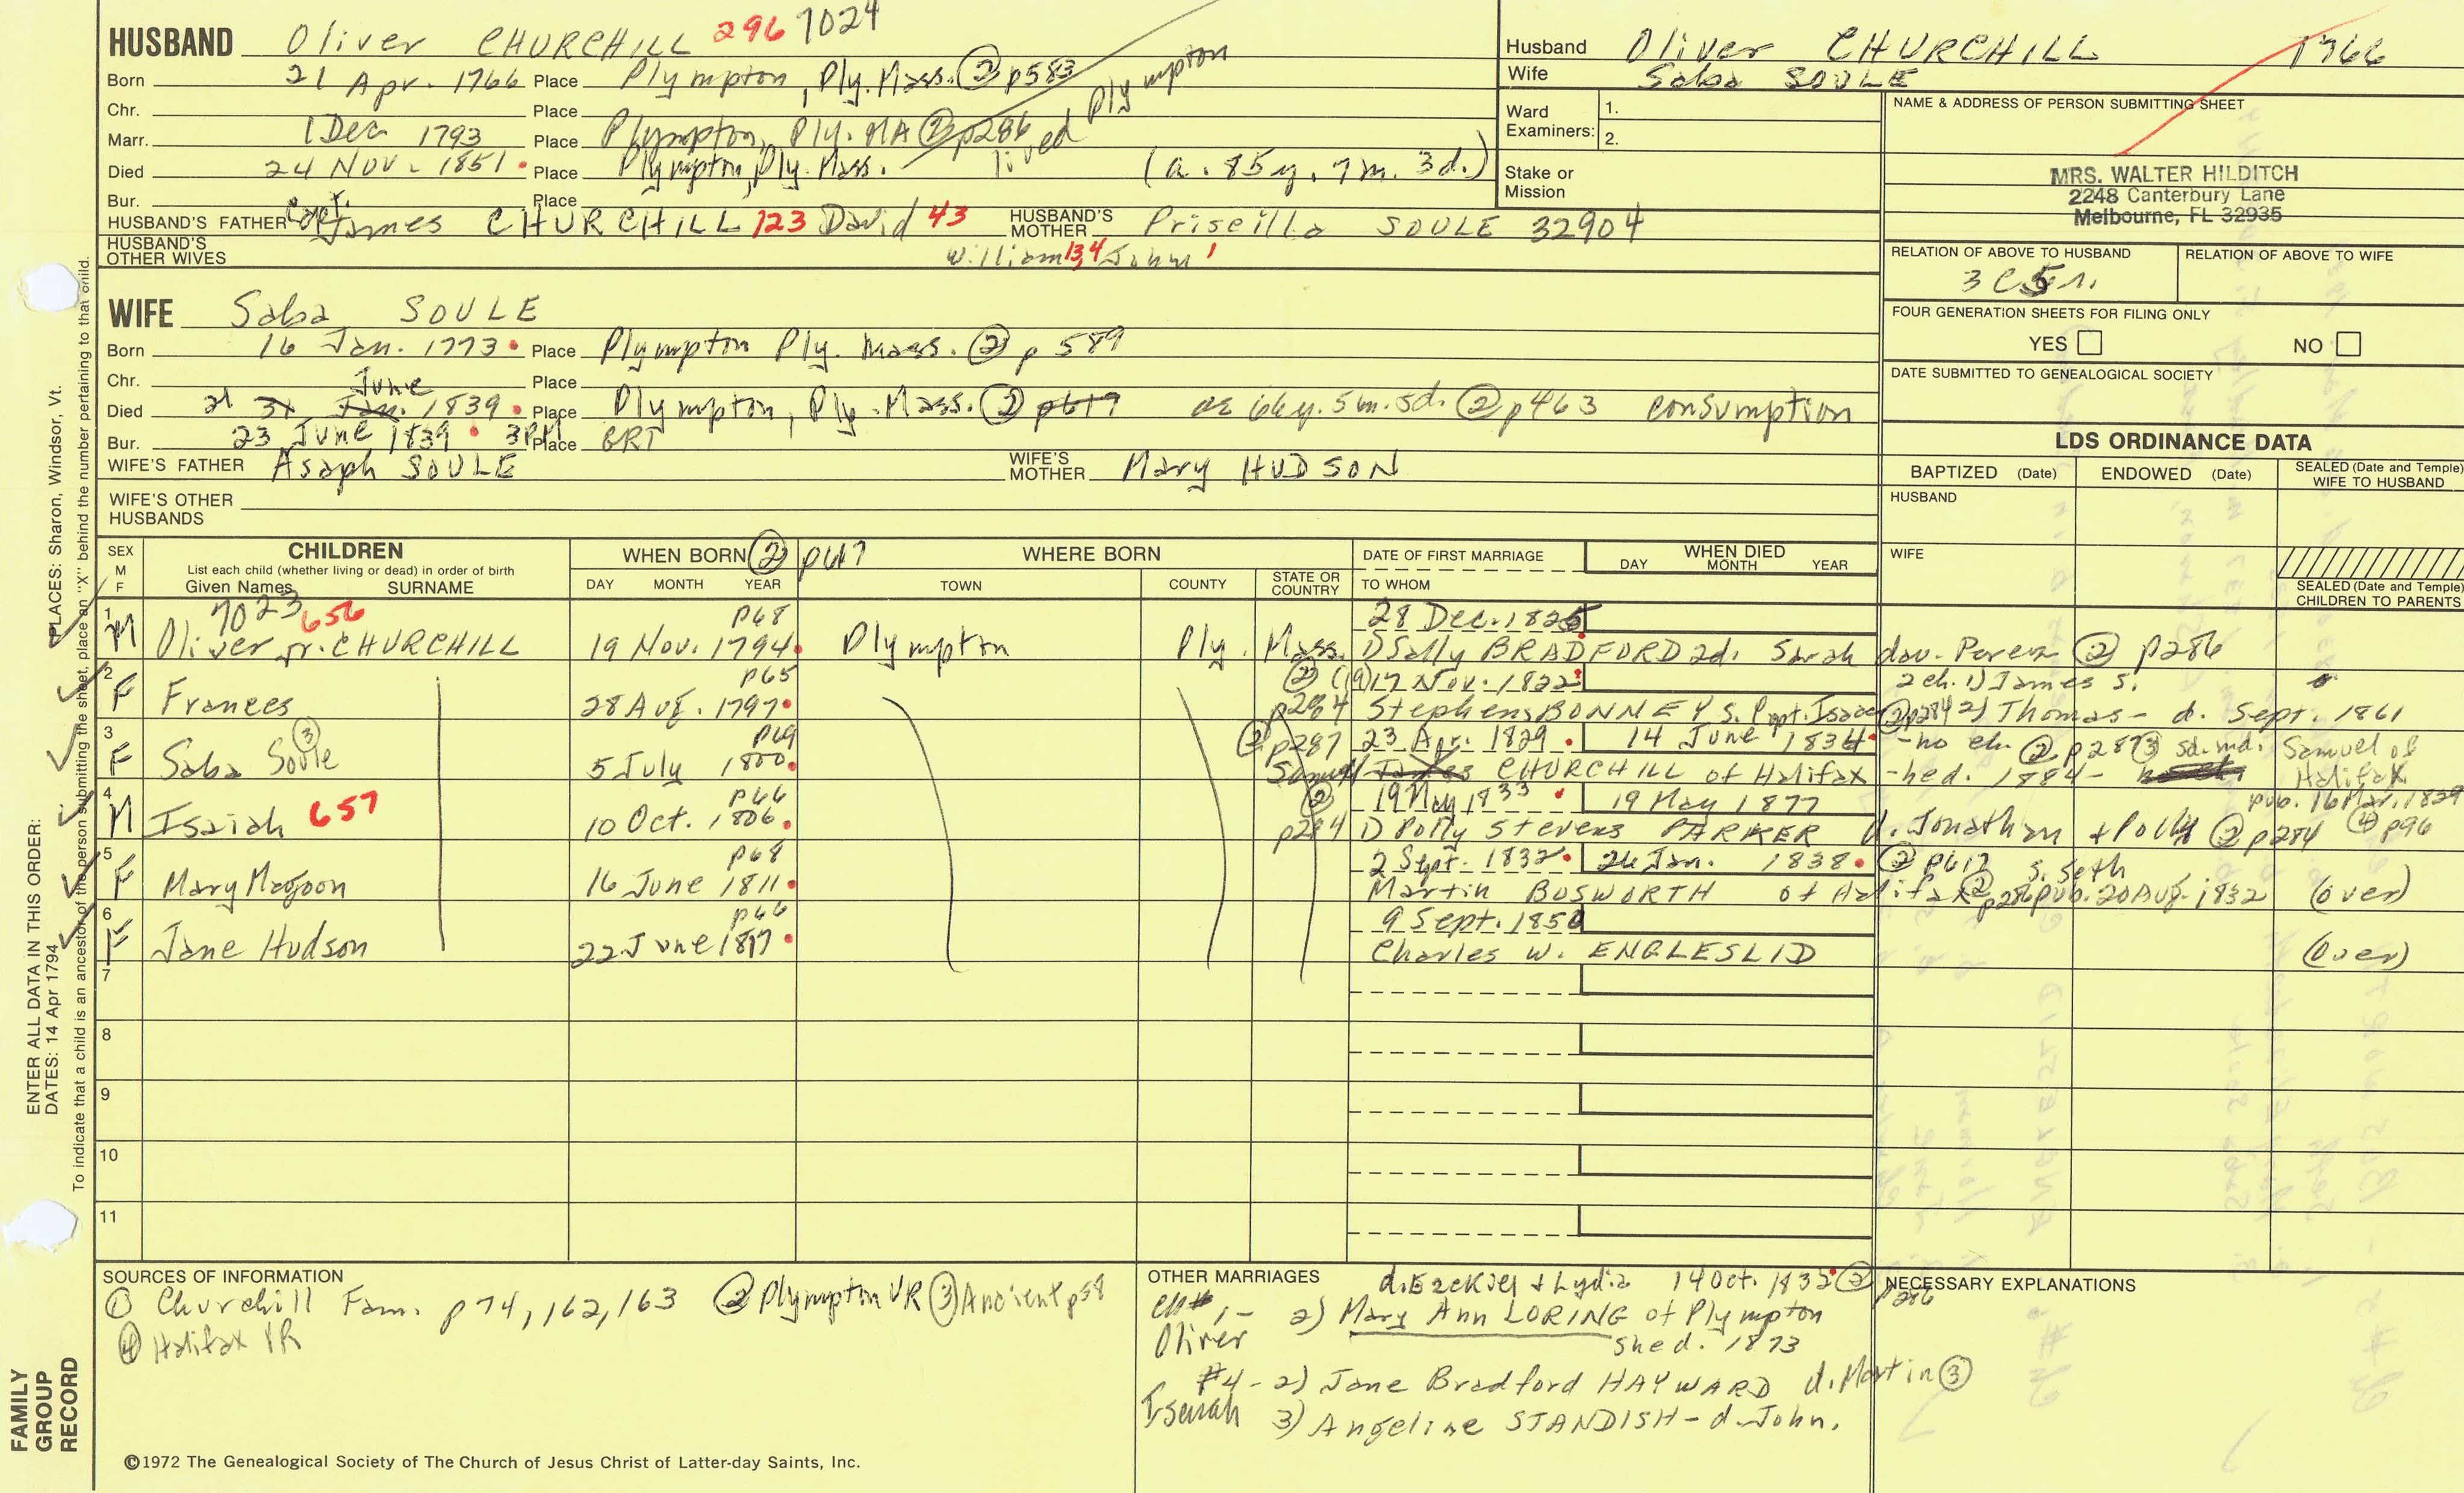 HUSBAND Oliver CHURCHILL 296 7024
Born 21 Apr. 1766 Place Plympton, Ply. Mass. ② p583
Chr. Place
Marr. 1 Dec 1793 Place Plympton, Ply. MA ② p286 lived Plympton
Died 24 Nov. 1851 Place Plympton, Ply. Mass. (a. 85y. 7m. 3d.)
Bur. Place
HUSBAND'S FATHER Capt. James CHURCHILL 123 David 43 HUSBAND'S MOTHER Priscilla SOULE 32904
HUSBAND'S OTHER WIVES William 13,4 John 1
WIFE Saba SOULE
Born 16 Jan. 1773 Place Plympton Ply. Mass. ② p 589
Chr. Place
June
Died 21 31 Jan. 1839 Place Plympton, Ply. Mass. ② p619 ae 66y. 5m. 5d. ② p463 consumption
Bur. 23 June 1839 3PM Place GRI
WIFE'S FATHER Asaph SOULE WIFE'S MOTHER Mary HUDSON
WIFE'S OTHER HUSBANDS
Husband Oliver CHURCHILL 1766
Wife Saba SOULE
Ward Examiners: 1.
2.
Stake or Mission
NAME & ADDRESS OF PERSON SUBMITTING SHEET
MRS. WALTER HILDITCH
2248 Canterbury Lane
Melbourne, FL 32935
RELATION OF ABOVE TO HUSBAND RELATION OF ABOVE TO WIFE
3 C 5 r.
FOUR GENERATION SHEETS FOR FILING ONLY
YES NO
DATE SUBMITTED TO GENEALOGICAL SOCIETY
LDS ORDINANCE DATA
BAPTIZED (Date) ENDOWED (Date) SEALED (Date and Temple) WIFE TO HUSBAND
HUSBAND
WIFE
SEALED (Date and Temple) CHILDREN TO PARENTS
SEX M F
CHILDREN
List each child (whether living or dead) in order of birth
Given Names SURNAME
WHEN BORN ② p617
DAY MONTH YEAR
WHERE BORN
TOWN COUNTY STATE OR COUNTRY
DATE OF FIRST MARRIAGE
TO WHOM
WHEN DIED
DAY MONTH YEAR
7023 656 p68 28 Dec. 1825
1 M Oliver Jr. CHURCHILL 19 Nov. 1794 Plympton Ply. Mass. 1) Sally BRADFORD 2d. Sarah dau. Perez ② p286
p65 ② (19) 17 Nov. 1822 2 ch. 1) James S.
2 F Frances 28 Aug. 1797 p284 Stephens BONNEY s. Isaac ② p284 2) Thomas - d. Sept. 1861
③ p69 ② p287 23 Apr. 1829 14 June 1834 - no ch. ② p287 ③ Samuel of
3 F Saba Soule 5 July 1800 Samuel James CHURCHILL of Halifax - he d. 1884 - Halifax
p66 ② 19 May 1833 19 May 1877 pub. 16 Mar. 1839
4 M Isaiah 657 10 Oct. 1806 p284 1) Polly Stevens PARKER d. Jonathan + Polly ② p284 ④ p96
p68 2 Sept. 1832 26 Jan. 1838 ② p617 s. Seth
5 F Mary Magoon 16 June 1811 Martin BOSWORTH of Halifax ② p286 pub. 20 Aug. 1832 (over)
p66 9 Sept. 1850
6 F Jane Hudson 22 June 1817 Charles W. ENGLESLID (over)
7
8
9
10
11
SOURCES OF INFORMATION
① Churchill Fam. p74, 162, 163 ② Plympton VR ③ Ancient p58
④ Halifax VR
OTHER MARRIAGES d. Ezekiel + Lydia 14 Oct. 1832 ② p286
ch# 1 - 2) Mary Ann LORING of Plympton
Oliver she d. 1873
#4 - 2) Jane Bradford HAYWARD d. Martin ③
Isaiah 3) Angeline STANDISH - d. John.
NECESSARY EXPLANATIONS
©1972 The Genealogical Society of The Church of Jesus Christ of Latter-day Saints, Inc.
FAMILY GROUP RECORD
ENTER ALL DATA IN THIS ORDER:
DATES: 14 Apr 1794
PLACES: Sharon, Windsor, Vt.
To indicate that a child is an ancestor of the person submitting the sheet, place an "X" behind the number pertaining to that child.